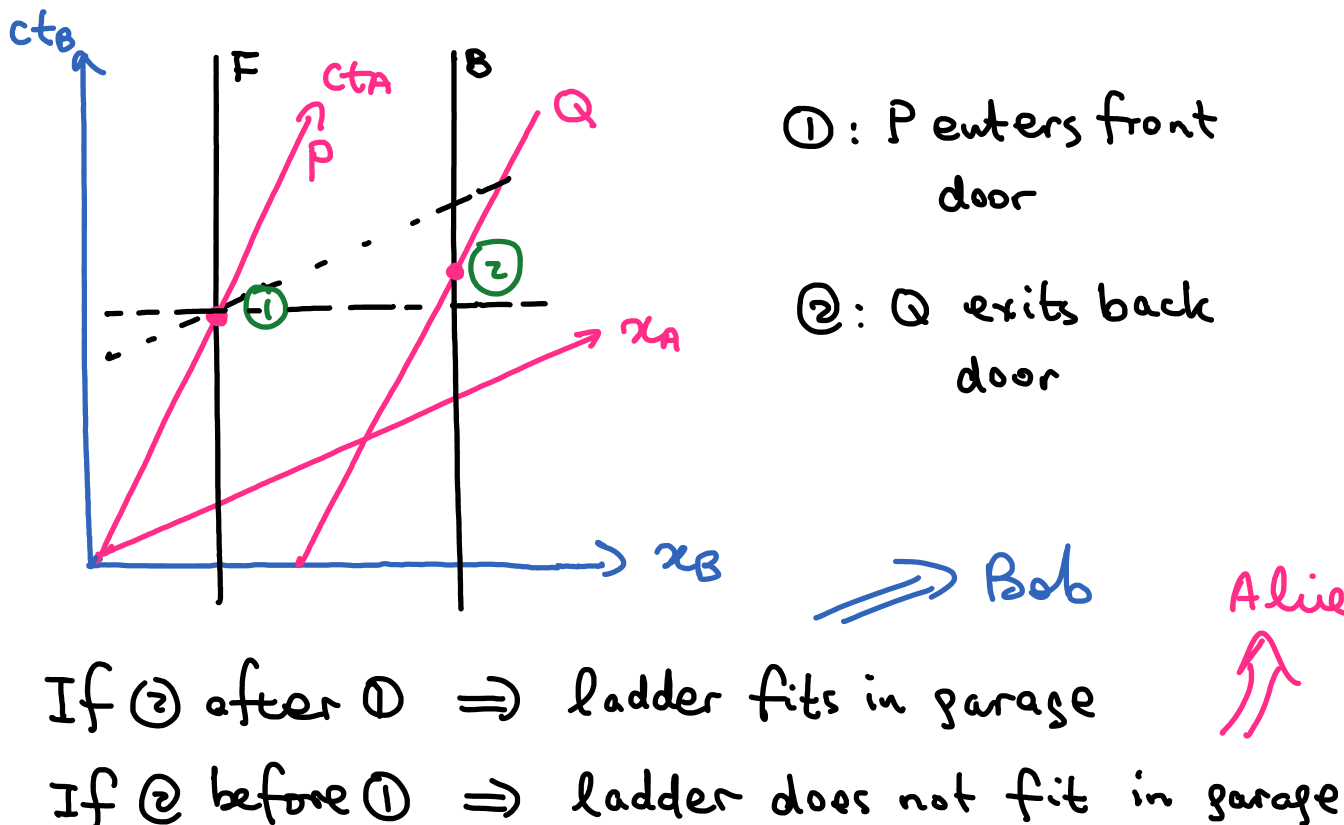 ct_B
F
ct_A
P
B
Q
①
②
x_A
x_B
①: P enters front
door
②: Q exits back
door
Bob
Alice
If ② after ① ⇒ ladder fits in garage
If ② before ① ⇒ ladder does not fit in garage